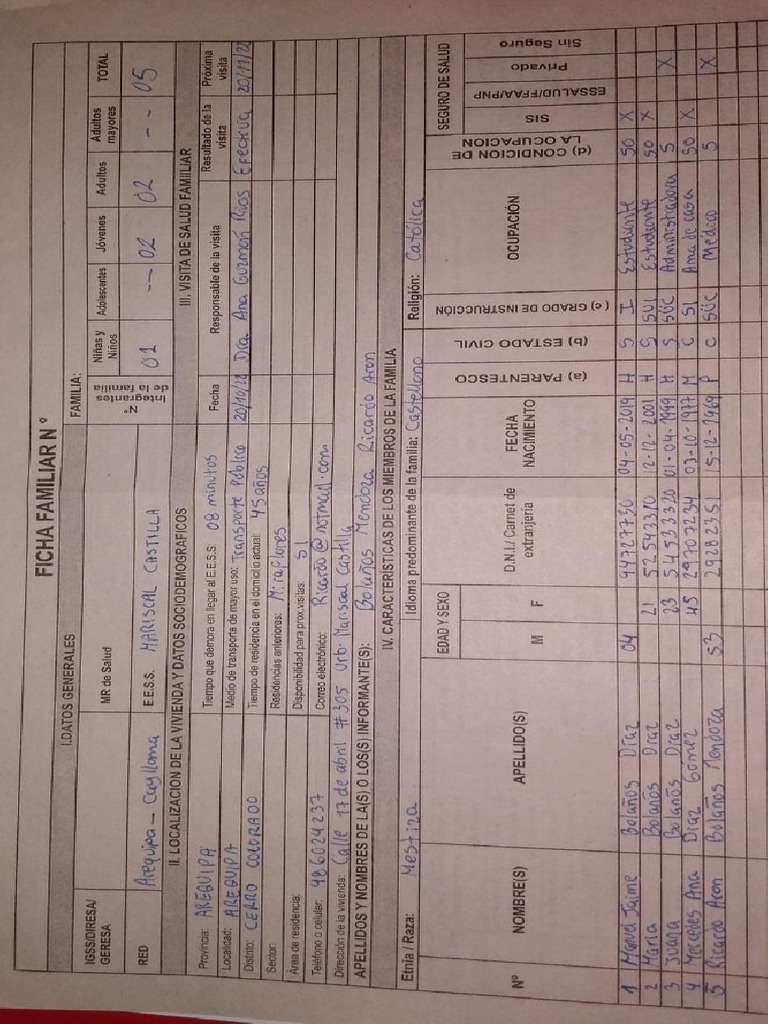 FICHA FAMILIAR N°
I.DATOS GENERALES
FAMILIA:
IGSS/DIRESA/ GERESA
MR de Salud
N° Integrantes de la familia
Niñas y Niños
Adolescentes
Jóvenes
Adultos
Adultos mayores
TOTAL
RED Arequipa - Caylloma E.E.S.S. MARISCAL CASTILLA 01 -- 02 02 -- 05
II. LOCALIZACION DE LA VIVIENDA Y DATOS SOCIODEMOGRAFICOS
III. VISITA DE SALUD FAMILIAR
Provincia: AREQUIPA Tiempo que demora en llegar al E.E.S.S: 08 minutos
Localidad: AREQUIPA Medio de transporte de mayor uso: Transporte Público
Distrito: CERRO COLORADO Tiempo de residencia en el domicilio actual: 45 años
Sector: Residencias anteriores: Miraflores
Área de residencia: Disponibilidad para prox.visitas: SI
Teléfono o celular: 986024237 Correo electrónico: Ricardo@hotmail.com
Fecha Responsable de la visita Resultado de la visita Próxima visita
20/10/22 Dra. Ana Guzmán Rios Efectiva 20/11/22
Dirección de la vivienda: Calle 17 de abril #305 Urb. Mariscal Castilla
APELLIDOS Y NOMBRES DE LA(S) O LOS(S) INFORMANTE(S): Bolaños Mendoza Ricardo Aron
IV. CARACTERÍSTICAS DE LOS MIEMBROS DE LA FAMILIA
Etnia / Raza: Mestiza Idioma predominante de la familia: Castellano Religión: Católica
Nº NOMBRE(S) APELLIDO(S) EDAD Y SEXO M F D.N.I./ Carnet de extranjeria FECHA NACIMIENTO (a) PARENTESCO (b) ESTADO CIVIL (c) GRADO DE INSTRUCCIÓN OCUPACIÓN (d) CONDICION DE LA OCUPACION SEGURO DE SALUD SIS ESSALUD/FFAA/PNP Privado Sin Seguro
1 Manuel Jaime Bolaños Díaz 04 94727730 04-05-2019 H S I Estudiante 50 X
2 María Bolaños Díaz 21 52543310 12-12-2001 H S SUI Estudiante 50 X
3 Juana Bolaños Díaz 23 54533320 01-04-1999 H S SUC Administradora S X
4 Mercedes Ana Díaz Gomez 45 29707234 03-10-1977 M C SI Ama de casa 50 X
5 Ricardo Aron Bolaños Mendoza 53 29282351 15-12-1969 P C SUC Médico S X